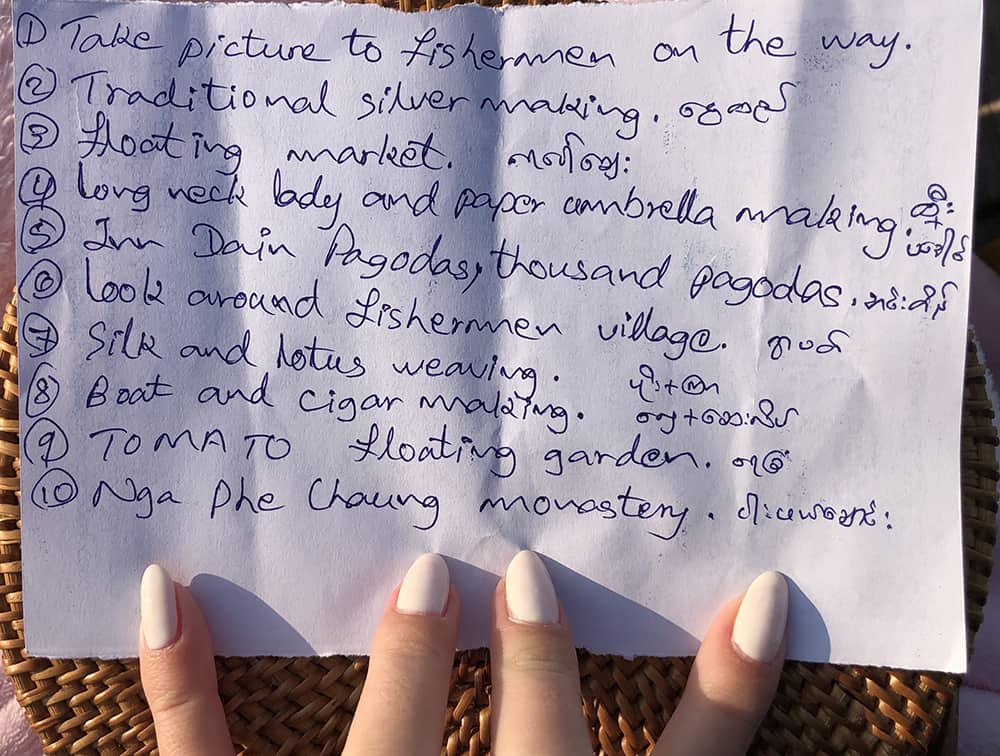 ① Take picture to fishermen on the way.
② Traditional silver making. ငွေဆိုင်
③ floating market. ကတ်ဈေး
④ long neck lady and paper umbrella making. ထီး
⑤ Inn Dain Pagodas, thousand pagodas. အင်းတိန်
⑥ look around fishermen village. ရွာပတ်
⑦ Silk and lotus weaving. ပိုး+ကြာ
⑧ Boat and cigar making. လှေ+ဆေးလိပ်
⑨ TOMATO floating garden.
⑩ Nga Phe Chaung monastery. ငါးဖယ်ချောင်း